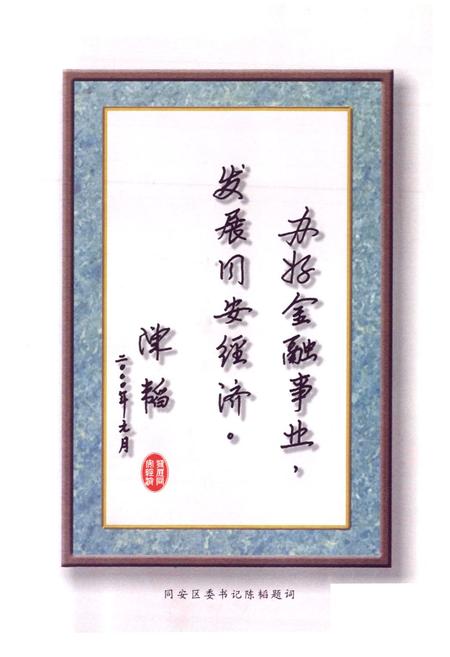 办好金融事业，
发展同安经济。
陈韬
二〇〇〇年元月
同安区委书记陈韬题词